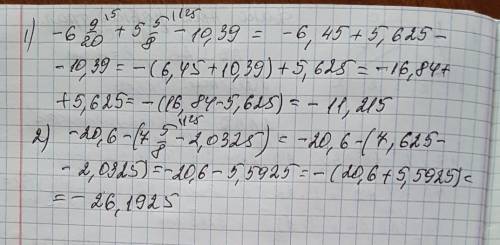 1) -6 9/20^15 + 5 5/8^1125 - 10,39 = -6,45 + 5,625 -
- 10,39 = -(6,45 + 10,39) + 5,625 = -16,84 +
+ 5,625 = -(16,84 - 5,625) = - 11,215
2) -20,6 - (7 5/8^1125 - 2,0325) = -20,6 - (7,625 -
- 2,0325) = -20,6 - 5,5925 = -(20,6 + 5,5925) =
= - 26,1925